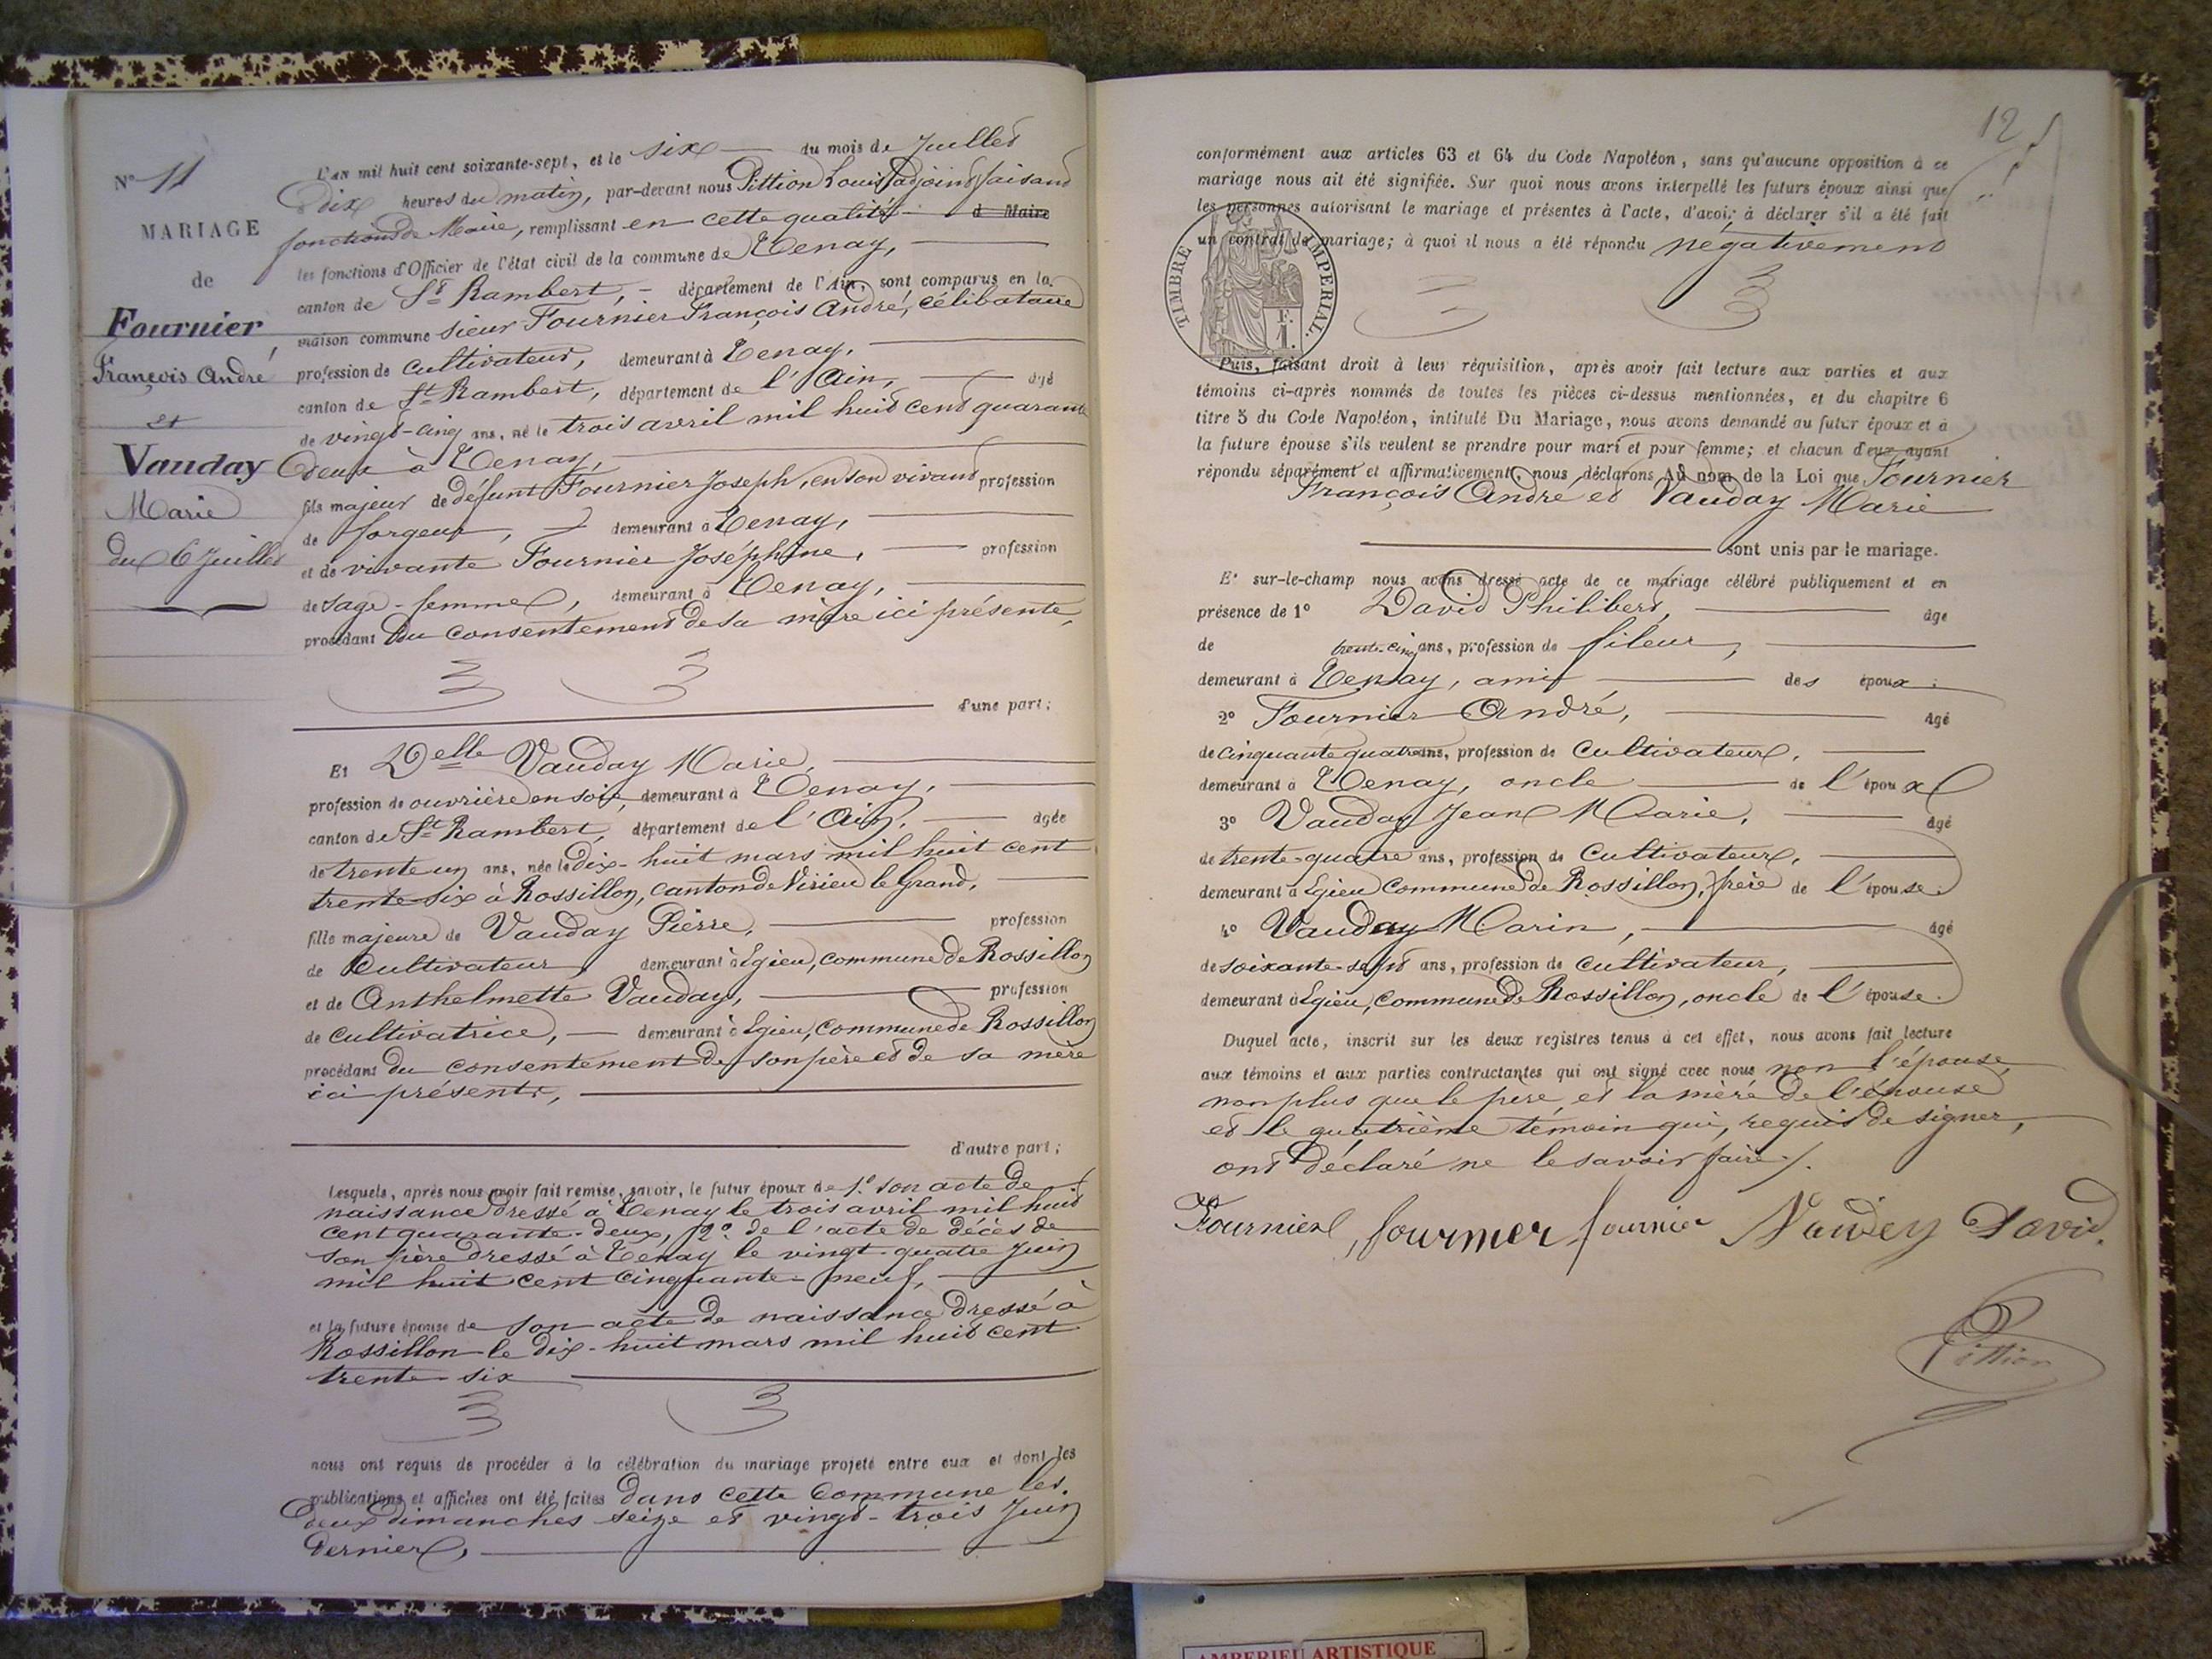 N° 11
MARIAGE
de
Fournier,
François André
et
Vauday
Marie
du 6 Juillet
L'AN mil huit cent soixante-sept, et le six du mois de Juillet
Dix heures du matin, par-devant nous Pittion Louis adjoint faisant
fonctions de Maire, remplissant en cette qualité d Maire
les fonctions d'Officier de l'état civil de la commune de Tenay,
canton de St Rambert, département de l'Ain, sont comparus en la
maison commune sieur Fournier François André, célibataire
profession de cultivateur, demeurant à Tenay,
canton de St Rambert, département de l'Ain, âgé
de vingt-cinq ans, né le trois avril mil huit cent quarante
deux à Tenay,
fils majeur de défunt Fournier Joseph, en son vivant profession
de forgeur, demeurant à Tenay,
et de vivante Fournier Joséphine, profession
de sage-femme, demeurant à Tenay,
procédant du consentement de sa mère ici présente,
d'une part;
Et Delle Vauday Marie,
profession de ouvrière en soie, demeurant à Tenay,
canton de St Rambert, département de l'Ain, âgée
de trente un ans, née le dix-huit mars mil huit cent
trente-six à Rossillon, canton de Virieu le Grand,
fille majeure de Vauday Pierre, profession
de Cultivateur, demeurant à Egieu, commune de Rossillon
et de Anthelmette Vauday, profession
de cultivatrice, demeurant à Egieu, commune de Rossillon
procédant du consentement de son père et de sa mère
ici présents,
d'autre part;
Lesquels, après nous avoir fait remise, savoir, le futur époux de 1.° son acte de
naissance dressé à Tenay le trois avril mil huit
cent quarante-deux, 2.° de l'acte de décès de
son père dressé à Tenay le vingt-quatre Juin
mil huit cent cinquante-neuf,
et la future épouse de son acte de naissance dressé à
Rossillon le dix-huit mars mil huit cent
trente-six
nous ont requis de procéder à la célébration du mariage projeté entre eux et dont les
publications et affiches ont été faites dans cette commune les
deux dimanches seize et vingt-trois Juin
dernier,
12
conformément aux articles 63 et 64 du Code Napoléon, sans qu'aucune opposition à ce
mariage nous ait été signifiée. Sur quoi nous avons interpellé les futurs époux ainsi que
les personnes autorisant le mariage et présentes à l'acte, d'avoir à déclarer s'il a été fait
un contrat de mariage; à quoi il nous a été répondu négativement
TIMBRE IMPERIAL.
F.
1.
Puis, faisant droit à leur réquisition, après avoir fait lecture aux parties et aux
témoins ci-après nommés de toutes les pièces ci-dessus mentionnées, et du chapitre 6
titre 5 du Code Napoléon, intitulé DU MARIAGE, nous avons demandé au futur époux et à
la future épouse s'ils veulent se prendre pour mari et pour femme; et chacun d'eux ayant
répondu séparément et affirmativement, nous déclarons AU nom de la Loi que Fournier
François André et Vauday Marie
sont unis par le mariage.
Et sur-le-champ nous avons dressé acte de ce mariage célébré publiquement et en
présence de 1° David Philibert, âgé
de trente-cinq ans, profession de fileur,
demeurant à Tenay, ami des époux.
2° Fournier André, âgé
de cinquante quatre ans, profession de Cultivateur,
demeurant à Tenay, oncle de l'époux
3° Vauday Jean Marie, âgé
de trente-quatre ans, profession de Cultivateur,
demeurant à Egieu commune de Rossillon, frère de l'épouse.
4° Vauday Marin, âgé
de soixante-sept ans, profession de cultivateur,
demeurant à Egieu, commune de Rossillon, oncle de l'épouse.
Duquel acte, inscrit sur les deux registres tenus à cet effet, nous avons fait lecture
aux témoins et aux parties contractantes qui ont signé avec nous non l'épouse,
non plus que le père et la mère de l'épouse
et le quatrième témoin qui, requis de signer,
ont déclaré ne le savoir faire./.
Fournier, fournier fournier Vaudey David.
Pittion
AMBERIEU ARTISTIQUE